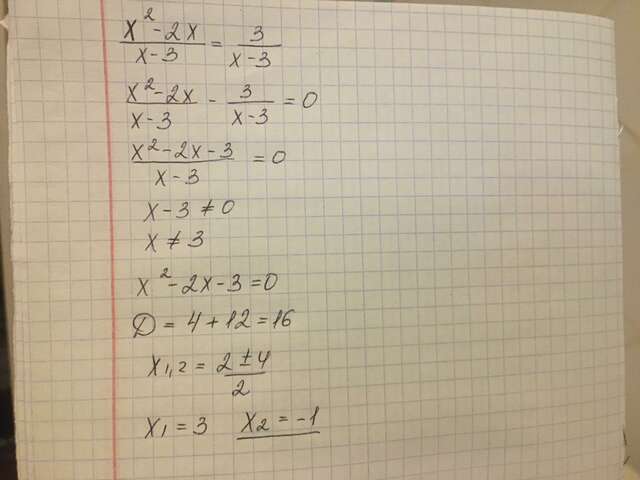 x² - 2x / x - 3 = 3 / x - 3
x² - 2x / x - 3 - 3 / x - 3 = 0
x² - 2x - 3 / x - 3 = 0
x - 3 ≠ 0
x ≠ 3
x² - 2x - 3 = 0
D = 4 + 12 = 16
x₁,₂ = 2 ± 4 / 2
x₁ = 3 x₂ = -1